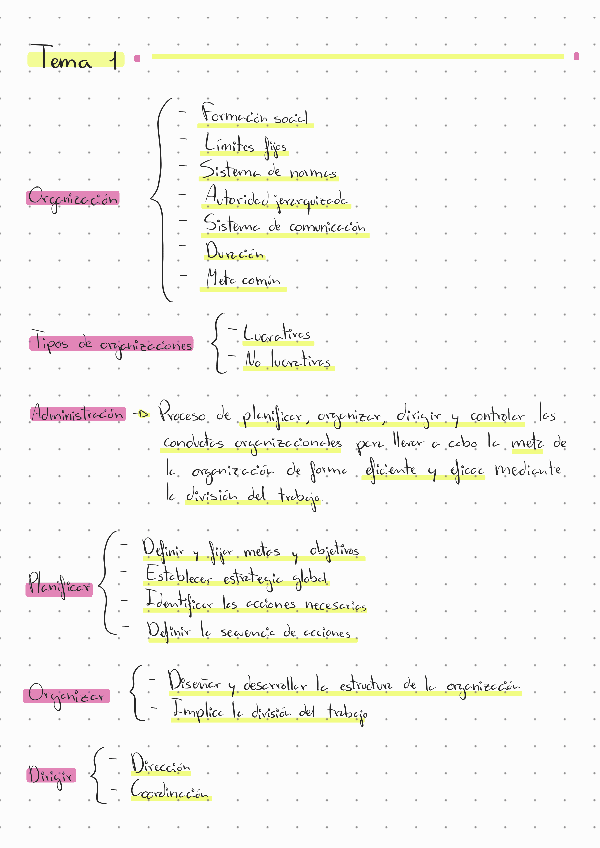 Tema 1
Organización
- Formación social
- Límites fijos
- Sistema de normas
- Autoridad jerarquizada
- Sistema de comunicación
- Duración
- Meta común
Tipos de organizaciones
- Lucrativas
- No lucrativas
Administración → Proceso de planificar, organizar, dirigir y controlar las
conductas organizacionales para llevar a cabo la meta de
la organización de forma eficiente y eficaz mediante
la división del trabajo
Planificar
- Definir y fijar metas y objetivos
- Establecer estrategia global
- Identificar las acciones necesarias
- Definir la secuencia de acciones
Organizar
- Diseñar y desarrollar la estructura de la organización
- Implica la división del trabajo
Dirigir
- Dirección
- Coordinación